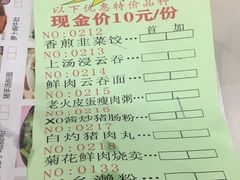 以下优惠特价品种
现金价10元/份
NO:0212 首 加
香煎韭菜饺
NO:0213
上汤浸云吞
NO:0214
鲜肉云吞面
NO:0215
老火皮蛋瘦肉粥
NO:0216
XO酱炒猪肠粉
NO:0217
白灼猪肉丸
NO:0218
菊花鲜肉烧卖
NO:0133
濑粉